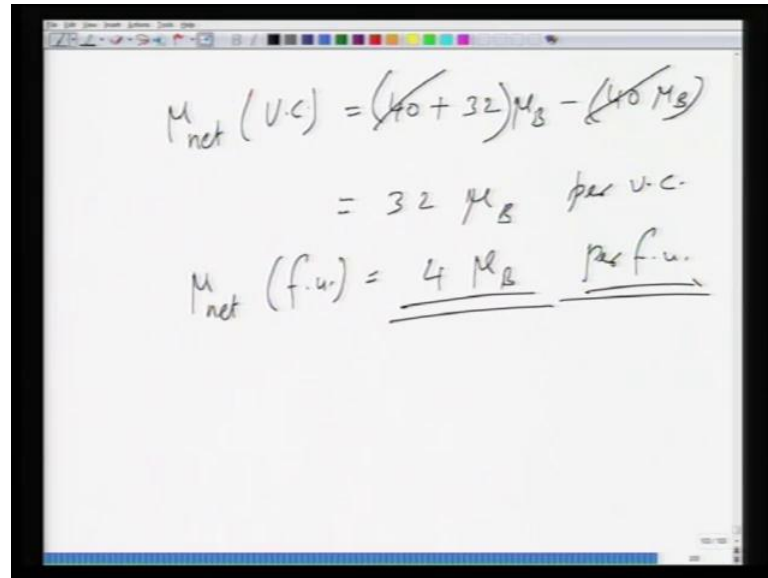 μnet (U.C) = (40 + 32)μB − (40 μB)
= 32 μB per u.c.
μnet (f.u.) = 4 μB per f.u.